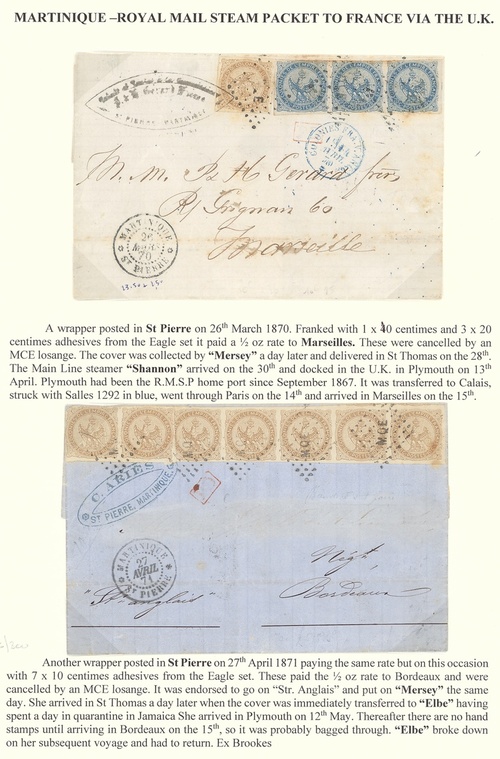 MARTINIQUE –ROYAL MAIL STEAM PACKET TO FRANCE VIA THE U.K.
ST PIERRE, MARTINIQUE
COLONIES FRANCAISES
M. M. P & H Gerard frères
R/ Grignan 60
Marseille
MARTINIQUE
26
MARS
70
ST PIERRE
A wrapper posted in St Pierre on 26th March 1870. Franked with 1 x 10 centimes and 3 x 20
centimes adhesives from the Eagle set it paid a ½ oz rate to Marseilles. These were cancelled by an
MCE losange. The cover was collected by “Mersey” a day later and delivered in St Thomas on the 28th.
The Main Line steamer “Shannon” arrived on the 30th and docked in the U.K. in Plymouth on 13th
April. Plymouth had been the R.M.S.P home port since September 1867. It was transferred to Calais,
struck with Salles 1292 in blue, went through Paris on the 14th and arrived in Marseilles on the 15th.
MQE
C. ARIES
ST PIERRE, MARTINIQUE.
MARTINIQUE
27
AVRIL
71
ST PIERRE
"Str anglais"
Bordeaux
Another wrapper posted in St Pierre on 27th April 1871 paying the same rate but on this occasion
with 7 x 10 centimes adhesives from the Eagle set. These paid the ½ oz rate to Bordeaux and were
cancelled by an MCE losange. It was endorsed to go on “Str. Anglais” and put on “Mersey” the same
day. She arrived in St Thomas a day later when the cover was immediately transferred to “Elbe” having
spent a day in quarantine in Jamaica She arrived in Plymouth on 12th May. Thereafter there are no hand
stamps until arriving in Bordeaux on the 15th, so it was probably bagged through. “Elbe” broke down
on her subsequent voyage and had to return. Ex Brookes